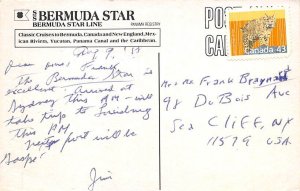 BERMUDA STAR
BERMUDA STAR LINE
PANAMA REGISTRY
Classic Cruises to Bermuda, Canada and New England, Mex-
ican Riviera, Yucatan, Panama Canal and the Caribbean.
POST
CA
Canada 43
Aug 9, '89
Dear
the Bermuda Star is
excellent arrived at
Sydney this AM - will
take trip to Louisburg
this PM
Next port will be
Gaspe.
Jim
Mr & Mrs Frank Braynard
98 DuBois Ave
Sea Cliff, NY
11579 USA.